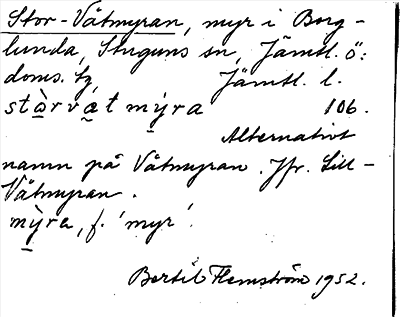 Stor-Våtmyran, myr i Borg-
lunda, Stuguns sn, Jämtl. ö:
doms. tg, Jämtl. l.
stà̱rvæ̰tmy̱ra 106.
Alternativt
namn på Våtmyran. Jfr. Lill-
Våtmyran.
mỳ̱ra, f. 'myr'.
Bertil Flemström 1952.